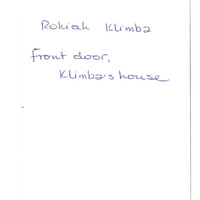 Rokiah Klimba
front door,
Klimba's house